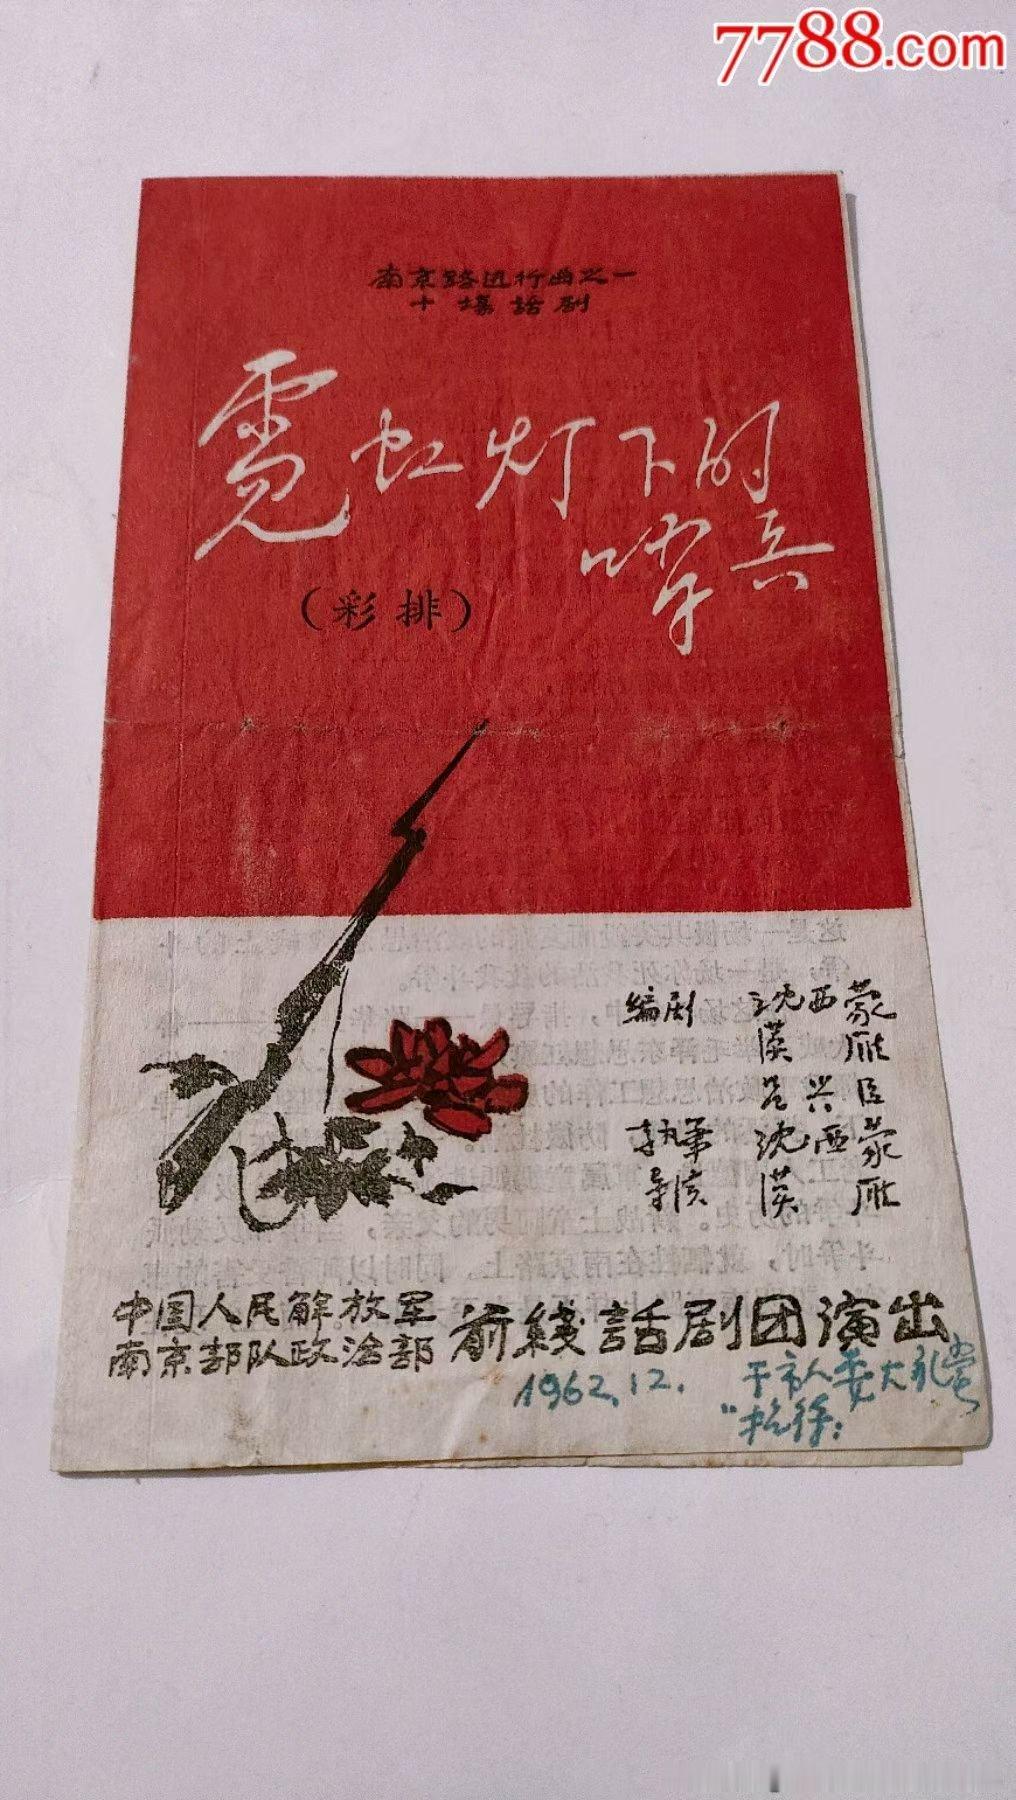 7788.com
南京路进行曲之一
十場話剧
霓虹灯下的
哨兵
（彩排）
编剧 沈西蒙
漠雁
吕兴臣
执筆 沈西蒙
导演 漠雁
中国人民解放军
南京部队政治部 前綫話剧团演出
1962.12. 于市人委大礼堂